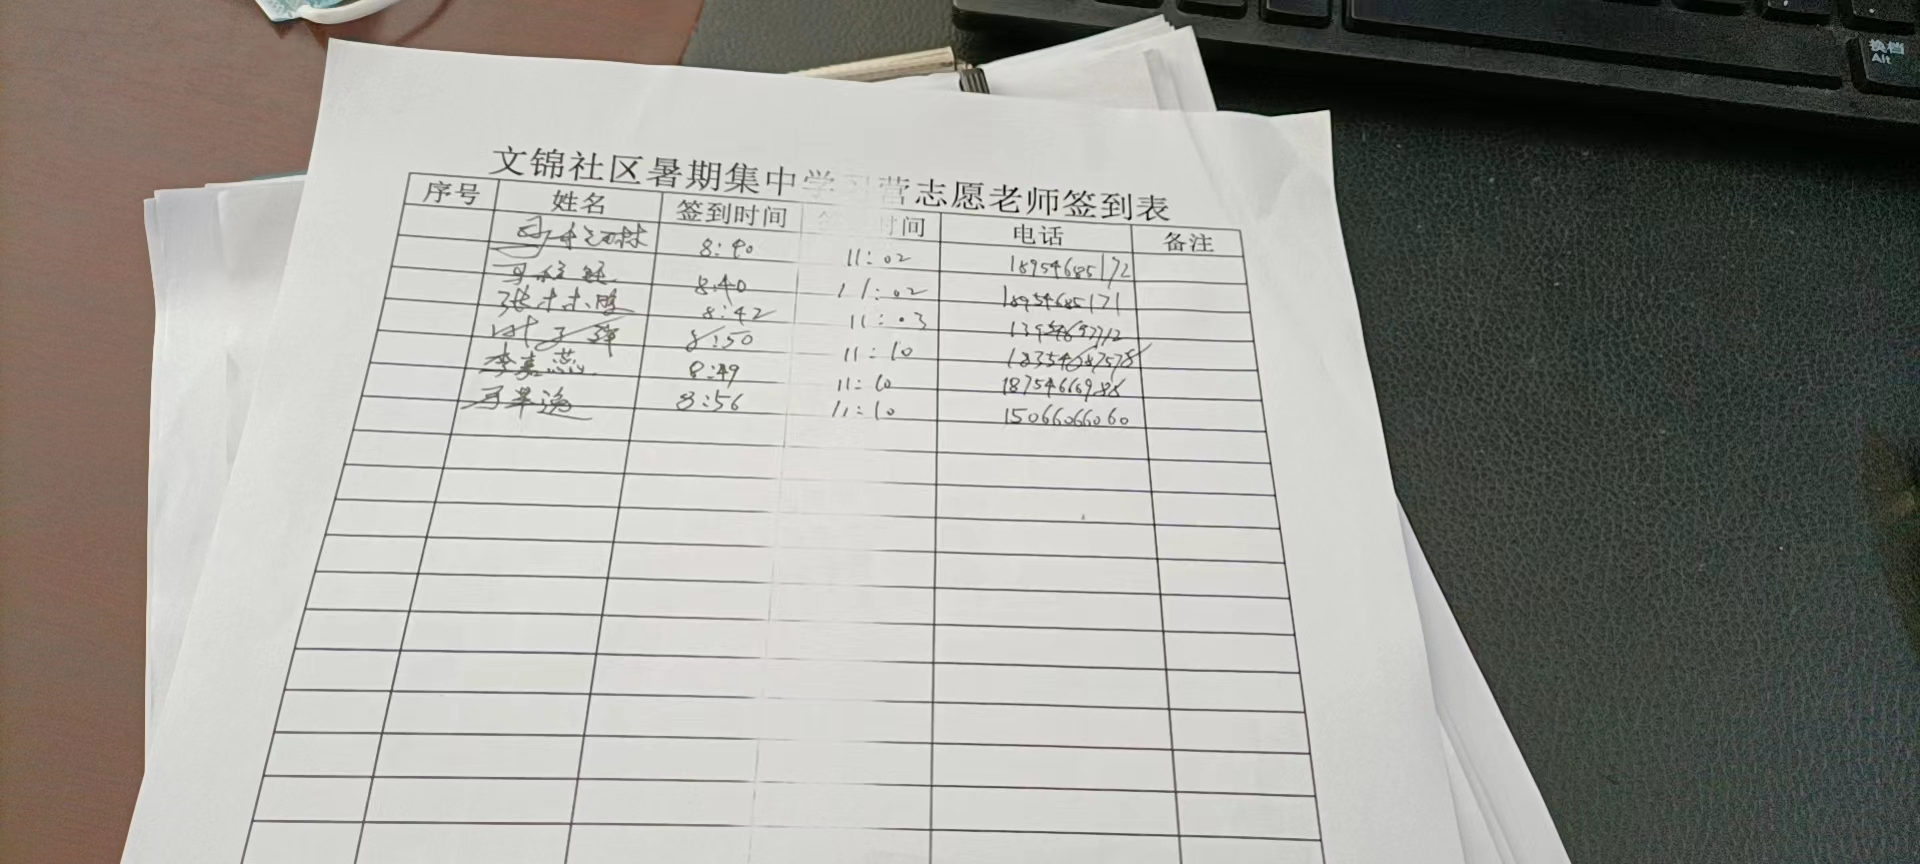 换档
Alt
文锦社区暑期集中学习营志愿老师签到表
序号 姓名 签到时间 签 时间 电话 备注
8:40 11:02 18954685172
8:40 11:02 18954685171
张 8:42 11:03
8:50 11:10
李嘉蕊 8:49 11:10 18754666988
8:56 11:10 15066066060